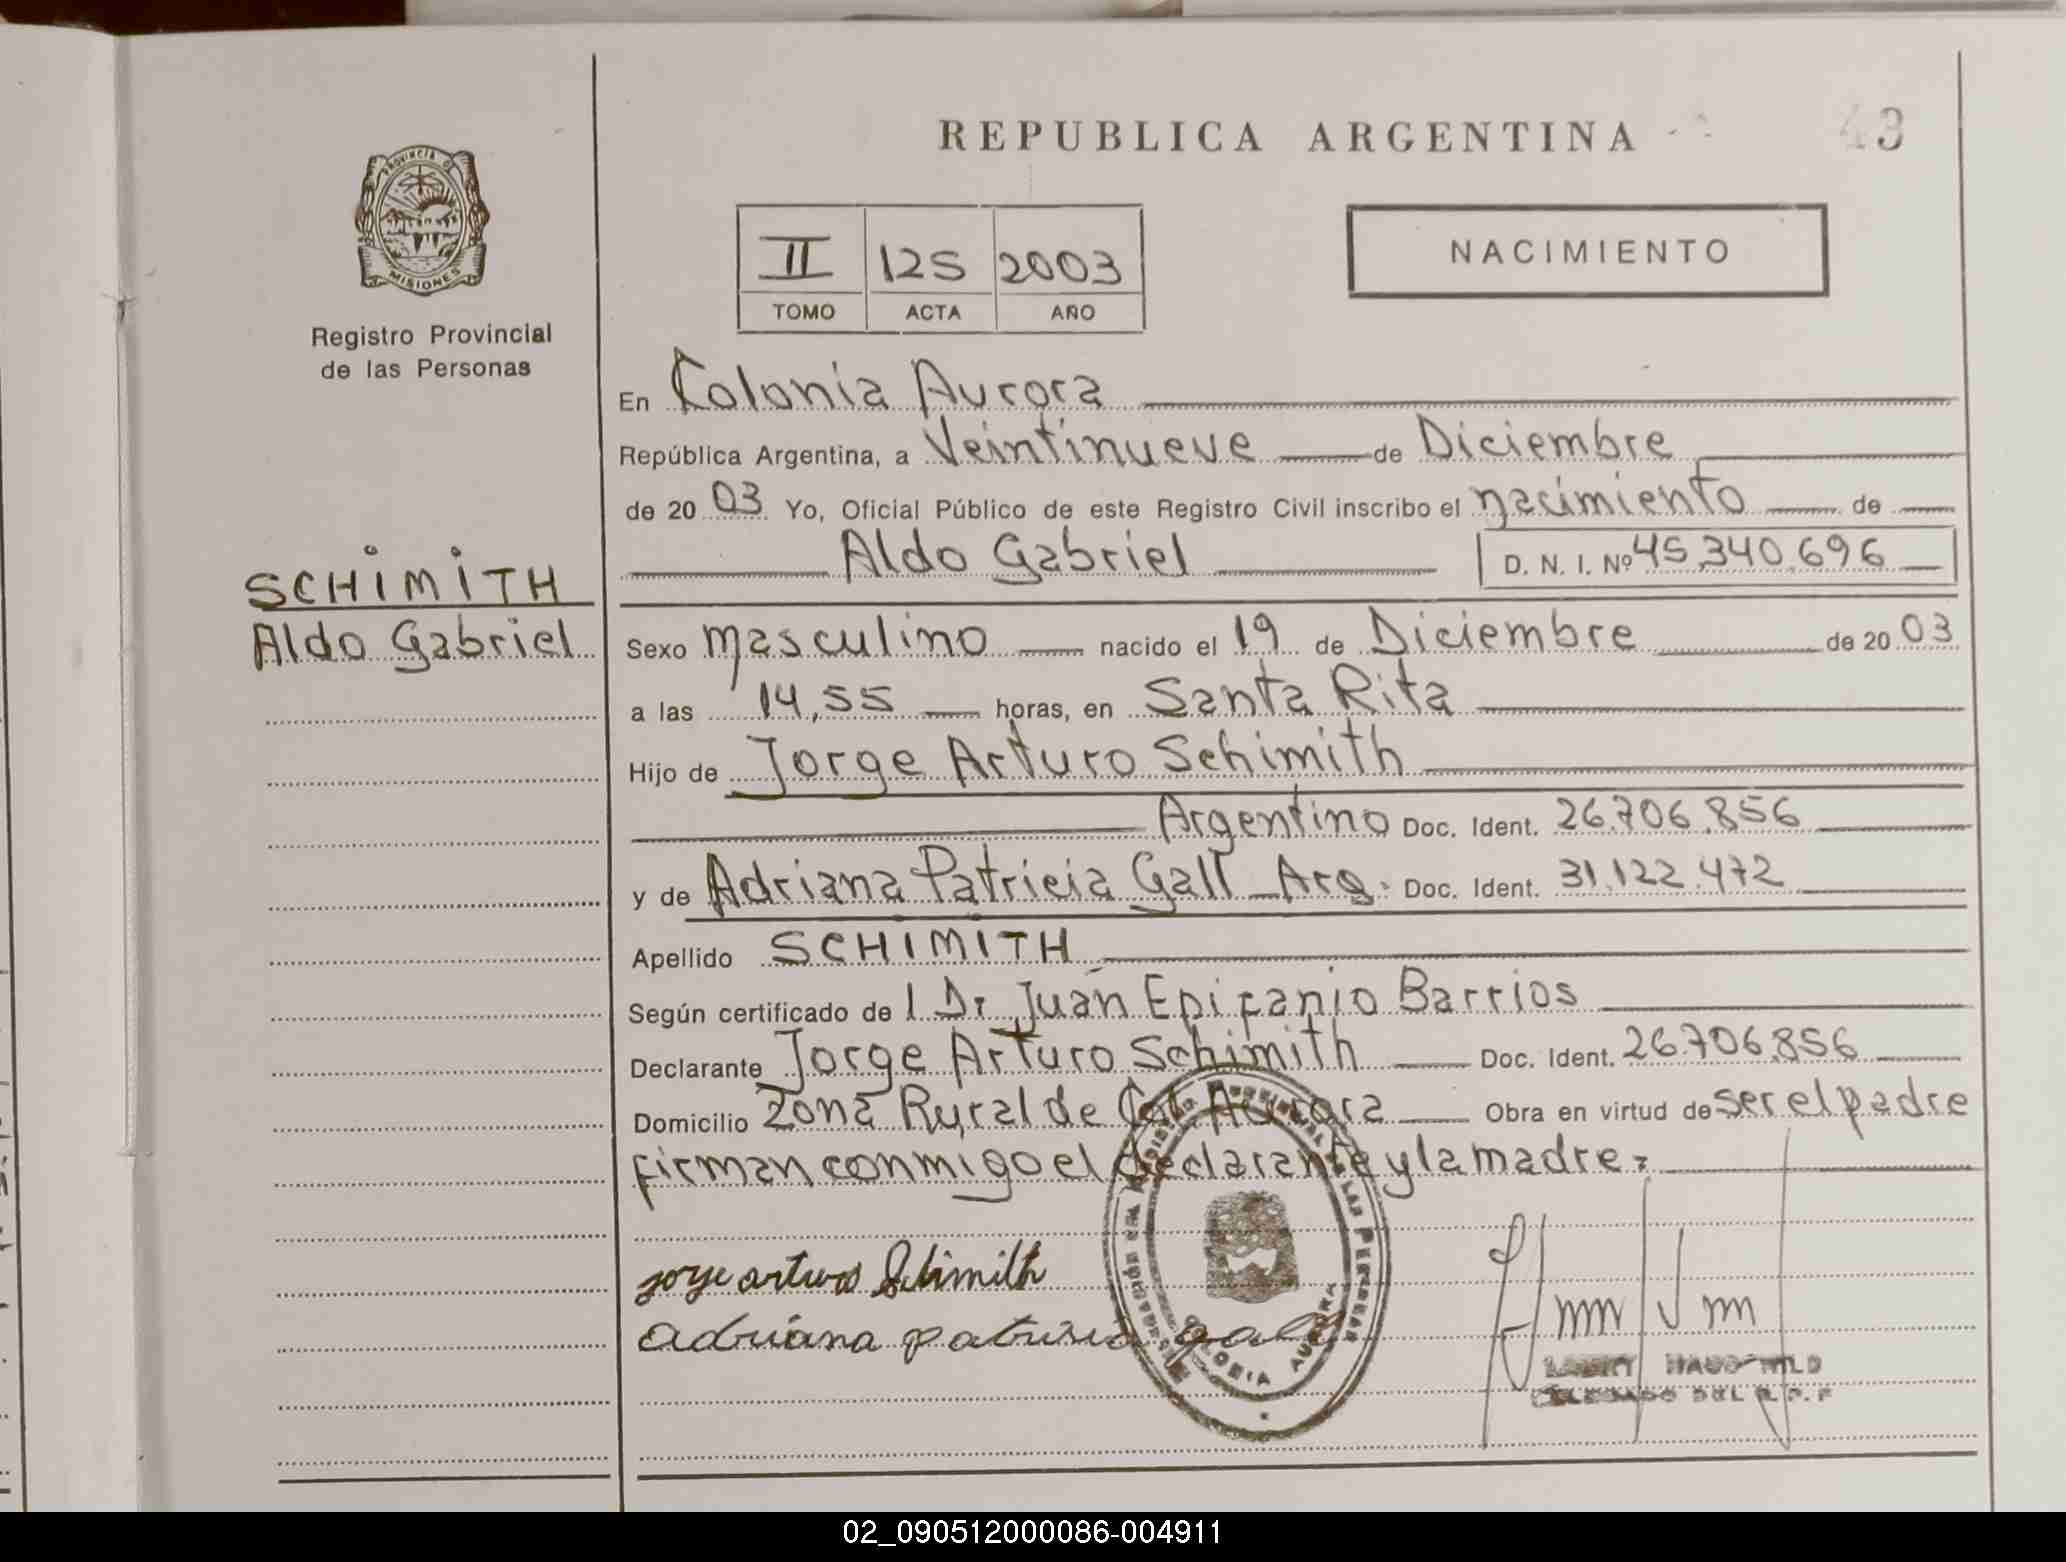 REPUBLICA ARGENTINA
43
PROVINCIA DE
MISIONES
Registro Provincial
de las Personas
II 125 2003
TOMO ACTA AÑO
NACIMIENTO
SCHIMITH
Aldo Gabriel
En Colonia Aurora
República Argentina, a Veintinueve de Diciembre
de 2003 Yo, Oficial Público de este Registro Civil inscribo el nacimiento de
Aldo Gabriel D. N. I. Nº 45.340.696
Sexo masculino nacido el 19 de Diciembre de 2003
a las 14,55 horas, en Santa Rita
Hijo de Jorge Arturo Schimith
Argentino Doc. Ident. 26.706.856
y de Adriana Patricia Gall Arg. Doc. Ident. 31.122.472
Apellido SCHIMITH
Según certificado de l Dr Juan Epifanio Barrios
Declarante Jorge Arturo Schimith Doc. Ident. 26.706.856
Domicilio Zona Rural de Col. Aurora Obra en virtud de ser el padre
firman conmigo el declarante y la madre.
jorge arturo Schimith
adriana patricia gall
COLONIA AURORA
LAS PERSONAS
DEL R.P.P
02_090512000086-004911